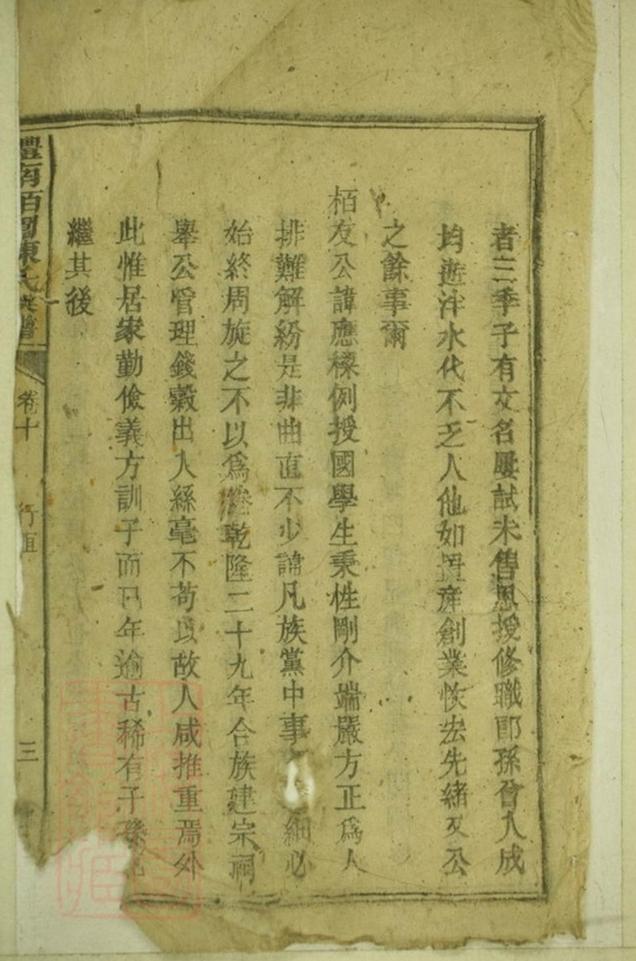 者三季子有文名屢試未售恩授修職郎孫曾入成
均遊泮水代不乏人他如置產創業恢宏先緒又公
之餘事爾
栢友公諱應樑例授國學生秉性剛介端嚴方正爲人
排難解紛是非曲直不少諱凡族黨中事細必
始終周旋之不以爲乾隆二十九年合族建宗祠
舉公管理錢穀出入絲毫不苟以故人咸推重焉外
此惟居家勤儉義方訓子而已年逾古稀有子孫
繼其後
陳氏族譜
卷十
行
三